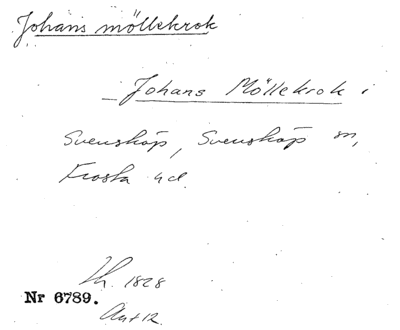 Johans möllekrok
Johans Möllekrok i
Svensköp, Svensköp sn,
Frosta hd.
Th. 1828
Nr 6789.
Ant 12